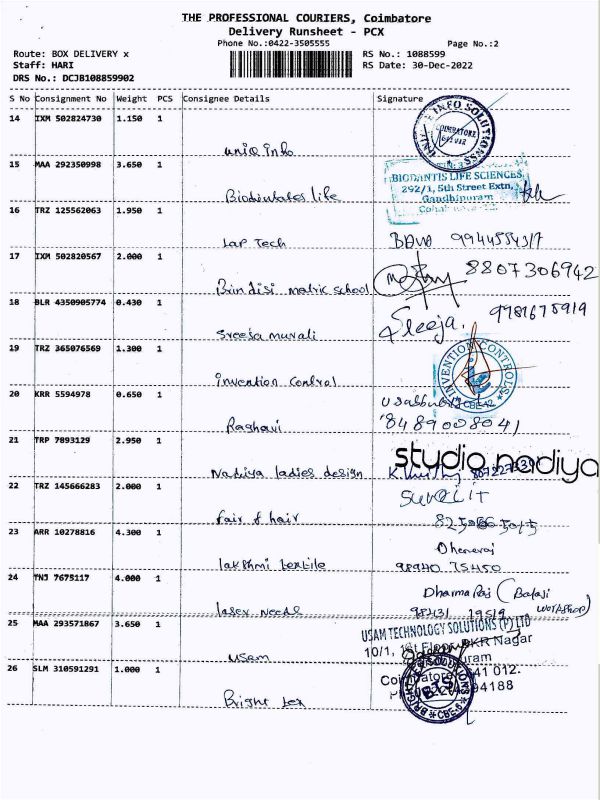 THE PROFESSIONAL COURIERS, Coimbatore
Delivery Runsheet - PCX
Phone No.:0422-3505555
Page No.:2
Route: BOX DELIVERY x
RS No.: 1088599
Staff: HARI
RS Date: 30-Dec-2022
DRS No.: DCJB108859902
S No Consignment No Weight PCS Consignee Details Signature
14 IXM 502824730 1.150 1
INFO SOLUTIONS
COIMBATORE
uniq info
15 MAA 292350998 3.650 1
BIODANTIS LIFE SCIENCES,
292/1, 5th Street Extn,
Gandhipuram
life
16 TRZ 125562063 1.950 1
Lap Tech
17 IXM 502820567 2.000 1
8807306942
Brindisi matric school
18 BLR 4350905774 0.430 1
Sreeja. 9781675919
Sreeja murali
19 TRZ 365076569 1.300 1
INVENTION CONTROLS
invention control
20 KRR 5594978 0.650 1
8489008041
Raghavi
21 TRP 7893129 2.950 1
studio nadiya
Nadiya ladies design
22 TRZ 145666283 2.000 1
fair & hair
23 ARR 10278816 4.300 1
Dheneraj
lakshmi textile
98940 75450
24 TNJ 7675117 4.000 1
DharmaRaj (Balaji
workshop)
98431 19519
laser needs
25 MAA 293571867 3.650 1
USAM TECHNOLOGY SOLUTIONS (P) LTD
10/1, 1st Floor, PKR Nagar
usam
26 SLM 310591291 1.000 1
641 012.
94188
CBE-6
Bright